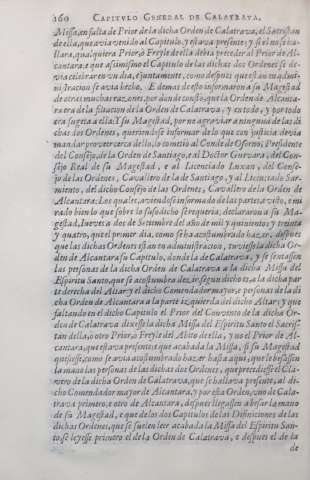 160 CAPITVLO GENERAL DE CALATRAVA.
Missa, en falta de Prior de la dicha Orden de Calatrava, el Sacristan
de ella, que avia venido al Capitulo, y estava presente; y si el no se ha-
llara, qualquiera Prior, ò Freyle della devia preceder al Prior de Al-
cantara: e que assimismo el Capitulo de las dichas dos Ordenes se de-
via celebrar en un dia, è juntamente, como despues que estàn en admi-
nistracion se avia hecho. E demas desto informaron a su Magestad
de otras muchas razones, por donde consto que la Orden de Alcanta-
ra era de la filiacion de la Orden de Calatrava, y en todo, y por todo
era sugeta a ella: E su Magestad, por no agraviar a ninguna de las di-
chas dos Ordenes, queriendose informar de lo que con justicia devia
mandar proveer cerca dello, lo cometio al Conde de Osorno, Presidente
del Consejo, de la Orden de Santiago, e al Doctor Guevara, del Con-
sejo Real de su Magestad, e al Licenciado Luxan, del Conse-
jo de las Ordenes, Cavallero de la de Santiago, y al Licenciado Sar-
miento, del dicho Consejo de las Ordenes, Cavallero de la Orden de
Alcantara: Los quales, aviendose informado de las partes, e visto, e mi
rado bien lo que sobre lo susodicho se requeria, declararon a su Ma-
gestad, Jueves a dos de Setiembre del año de mil y quinientos y treinta
y quatro, que el primer dia, como se ha acostumbrado hazer, despues
que las dichas Ordenes estàn en administracion, tuviesse la dicha Or-
den de Alcantara su Capitulo, donde la de Calatrava, y se sentassen
las personas de la dicha Orden de Calatrava a la dicha Missa del
Espiritu Santo, que se acostumbra dezir, segun dicho es, a la dicha par
te derecha del Altar; y el dicho Comendador mayor, e personas de la di
cha Orden de Alcantara a la parte izquierda del dicho Altar; y que
faltando en el dicho Capitulo el Prior del Convento de la dicha Or-
den de Calatrava dixesse la dicha Missa del Espiritu Santo el Sacris-
tan della, ò otro Prior, ò Freyle del Abito de ella, y no el Prior de Al-
cantara, que estavan presentes: que acabada la Missa, si su Magestad
quisiesse, como se avia acostumbrado hazer hasta aqui, que le besassen
la mano las personas de las dichas dos Ordenes, que precediesse el Cla-
vero de la dicha Orden de Calatrava, que se hallava presente, al di-
cho Comendador mayor de Alcantara, y por esta Orden, uno de Cala-
trava primero, e otro de Alcantara, despues llegassen a besar la mano
de su Magestad, e que de los dos Capitulos de las Difiniciones de las
dichas Ordenes, que se suelen leer acabada la Missa del Espiritu San-
to, se leyesse primero el de la Orden de Calatrava, e despues el de la
de